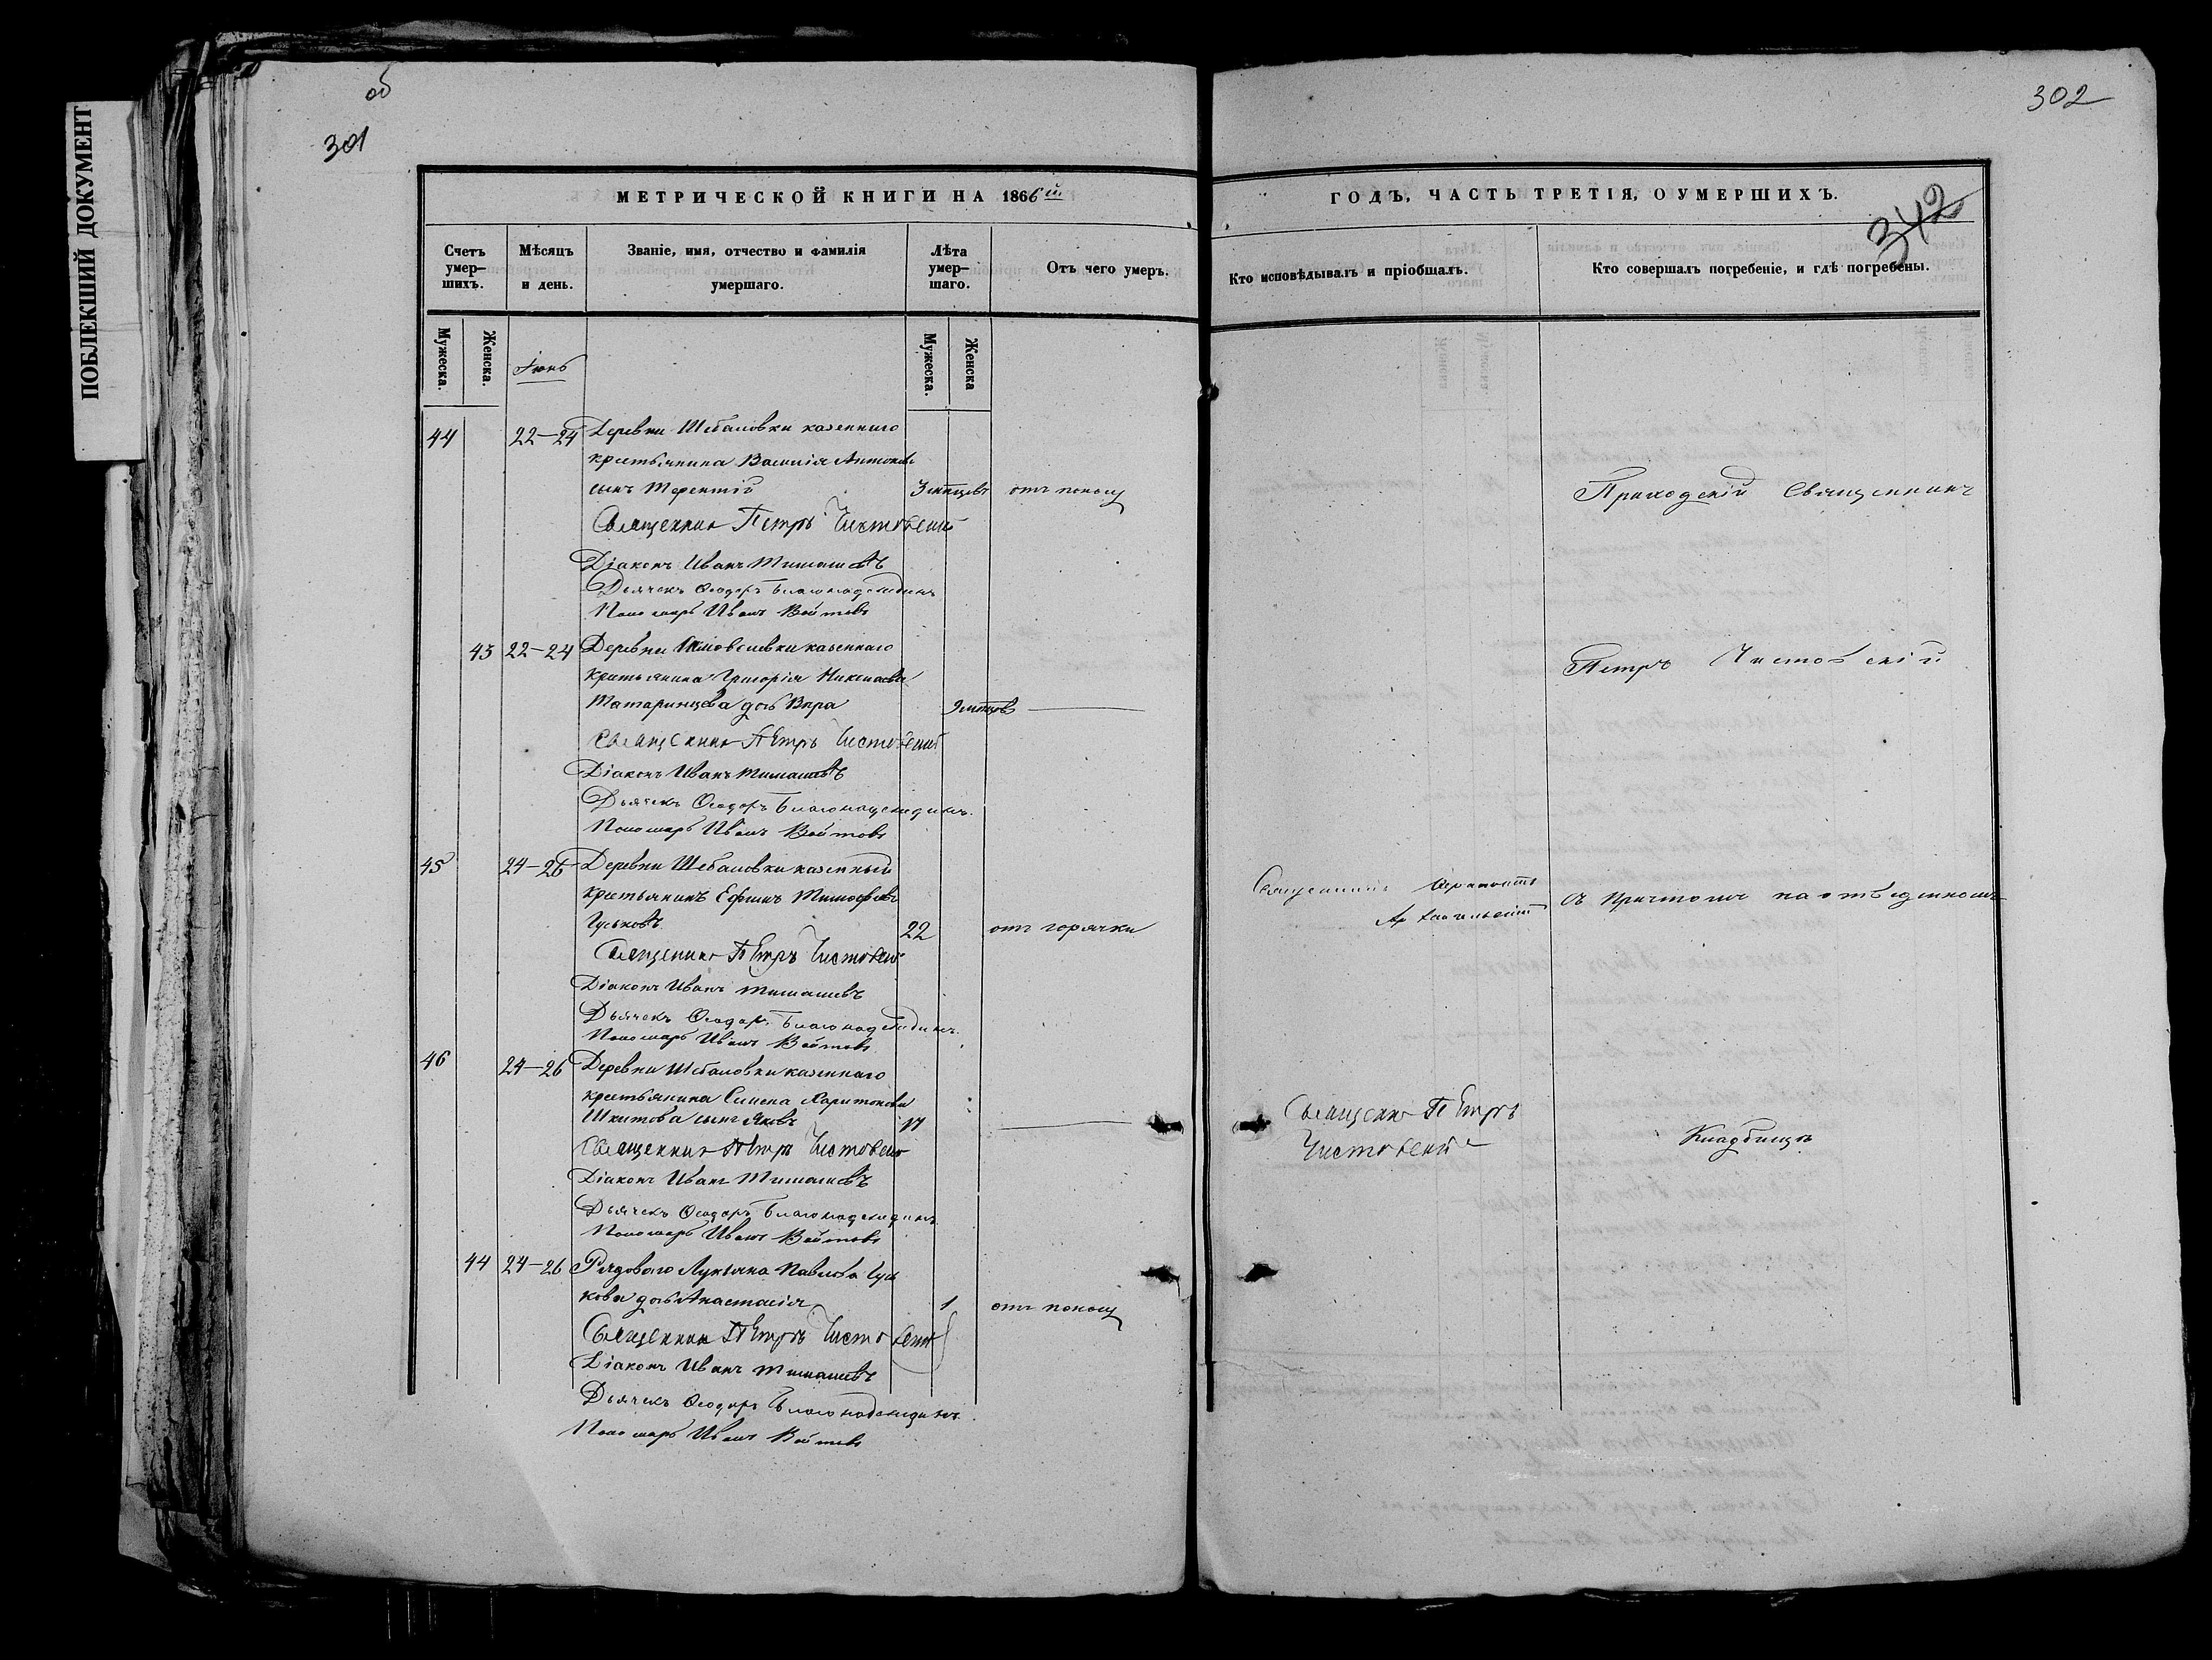 ПОБЛЕКШИЙ ДОКУМЕНТ
об
301
МЕТРИЧЕСКОЙ КНИГИ НА 1866й
Счетъ умер-шихъ.
Мѣсяцъ и день.
Званіе, имя, отчество и фамилія умершаго.
Лѣта умер-шаго.
Отъ чего умеръ.
Мужеска.
Женска.
Іюнь
Мужеска.
Женска
44 22-24 Деревни Шебаловки казеннаго
крестьянина Василія Антонова
сынъ Терентій 3 мѣсцевъ отъ поносу
Священникъ Петръ Чистовскій
Діаконъ Иванъ Тимашевъ
Дьячекъ Ѳеодоръ Благонадеждинъ
Пономарь Иванъ Войтовъ
43 22-24 Деревни казеннаго
крестьянина Григорія Николаева
Татаринцева дочь Вѣра 9 мѣсцовъ
Священникъ Петръ Чистовскій
Діаконъ Иванъ Тимашевъ
Дьячекъ Ѳеодоръ Благонадеждинъ.
Пономарь Иванъ Войтовъ
45 24-26 Деревни Шебаловки казенный
крестьянинъ Ефимъ Тимофеевъ
Гуськовъ 22 отъ горячки
Священникъ Петръ Чистовскій
Діаконъ Иванъ Тимашевъ
Дьячекъ Ѳеодоръ Благонадеждинъ.
Пономарь Иванъ Войтовъ
46 24-26 Деревни Шебаловки казеннаго
крестьянина Симена Харитонова
Шкитова сынъ Яковъ 17
Священникъ Петръ Чистовскій
Діаконъ Иванъ Тимашевъ
Дьячекъ Ѳеодоръ Благонадеждинъ
Пономарь Иванъ Войтовъ
44 24-26 Рядоваго Лукьяна Павлова Гусь
кова дочь Анастасія 1 отъ поносу
Священникъ Петръ Чистовскій
Діаконъ Иванъ Тимашевъ
Дьячекъ Ѳеодоръ Благонадеждинъ.
Пономарь Иванъ Войтовъ
302
ГОДЪ, ЧАСТЬ ТРЕТІЯ, О УМЕРШИХЪ.
342
Кто исповѣдывалъ и пріобщалъ.
Кто совершалъ погребеніе, и гдѣ погребены.
Приходскій Священникъ
Петръ Чистовскій
Священникъ
съ Причтомъ на отведенномъ
Священникъ Петръ
Чистовскій
Кладбищѣ